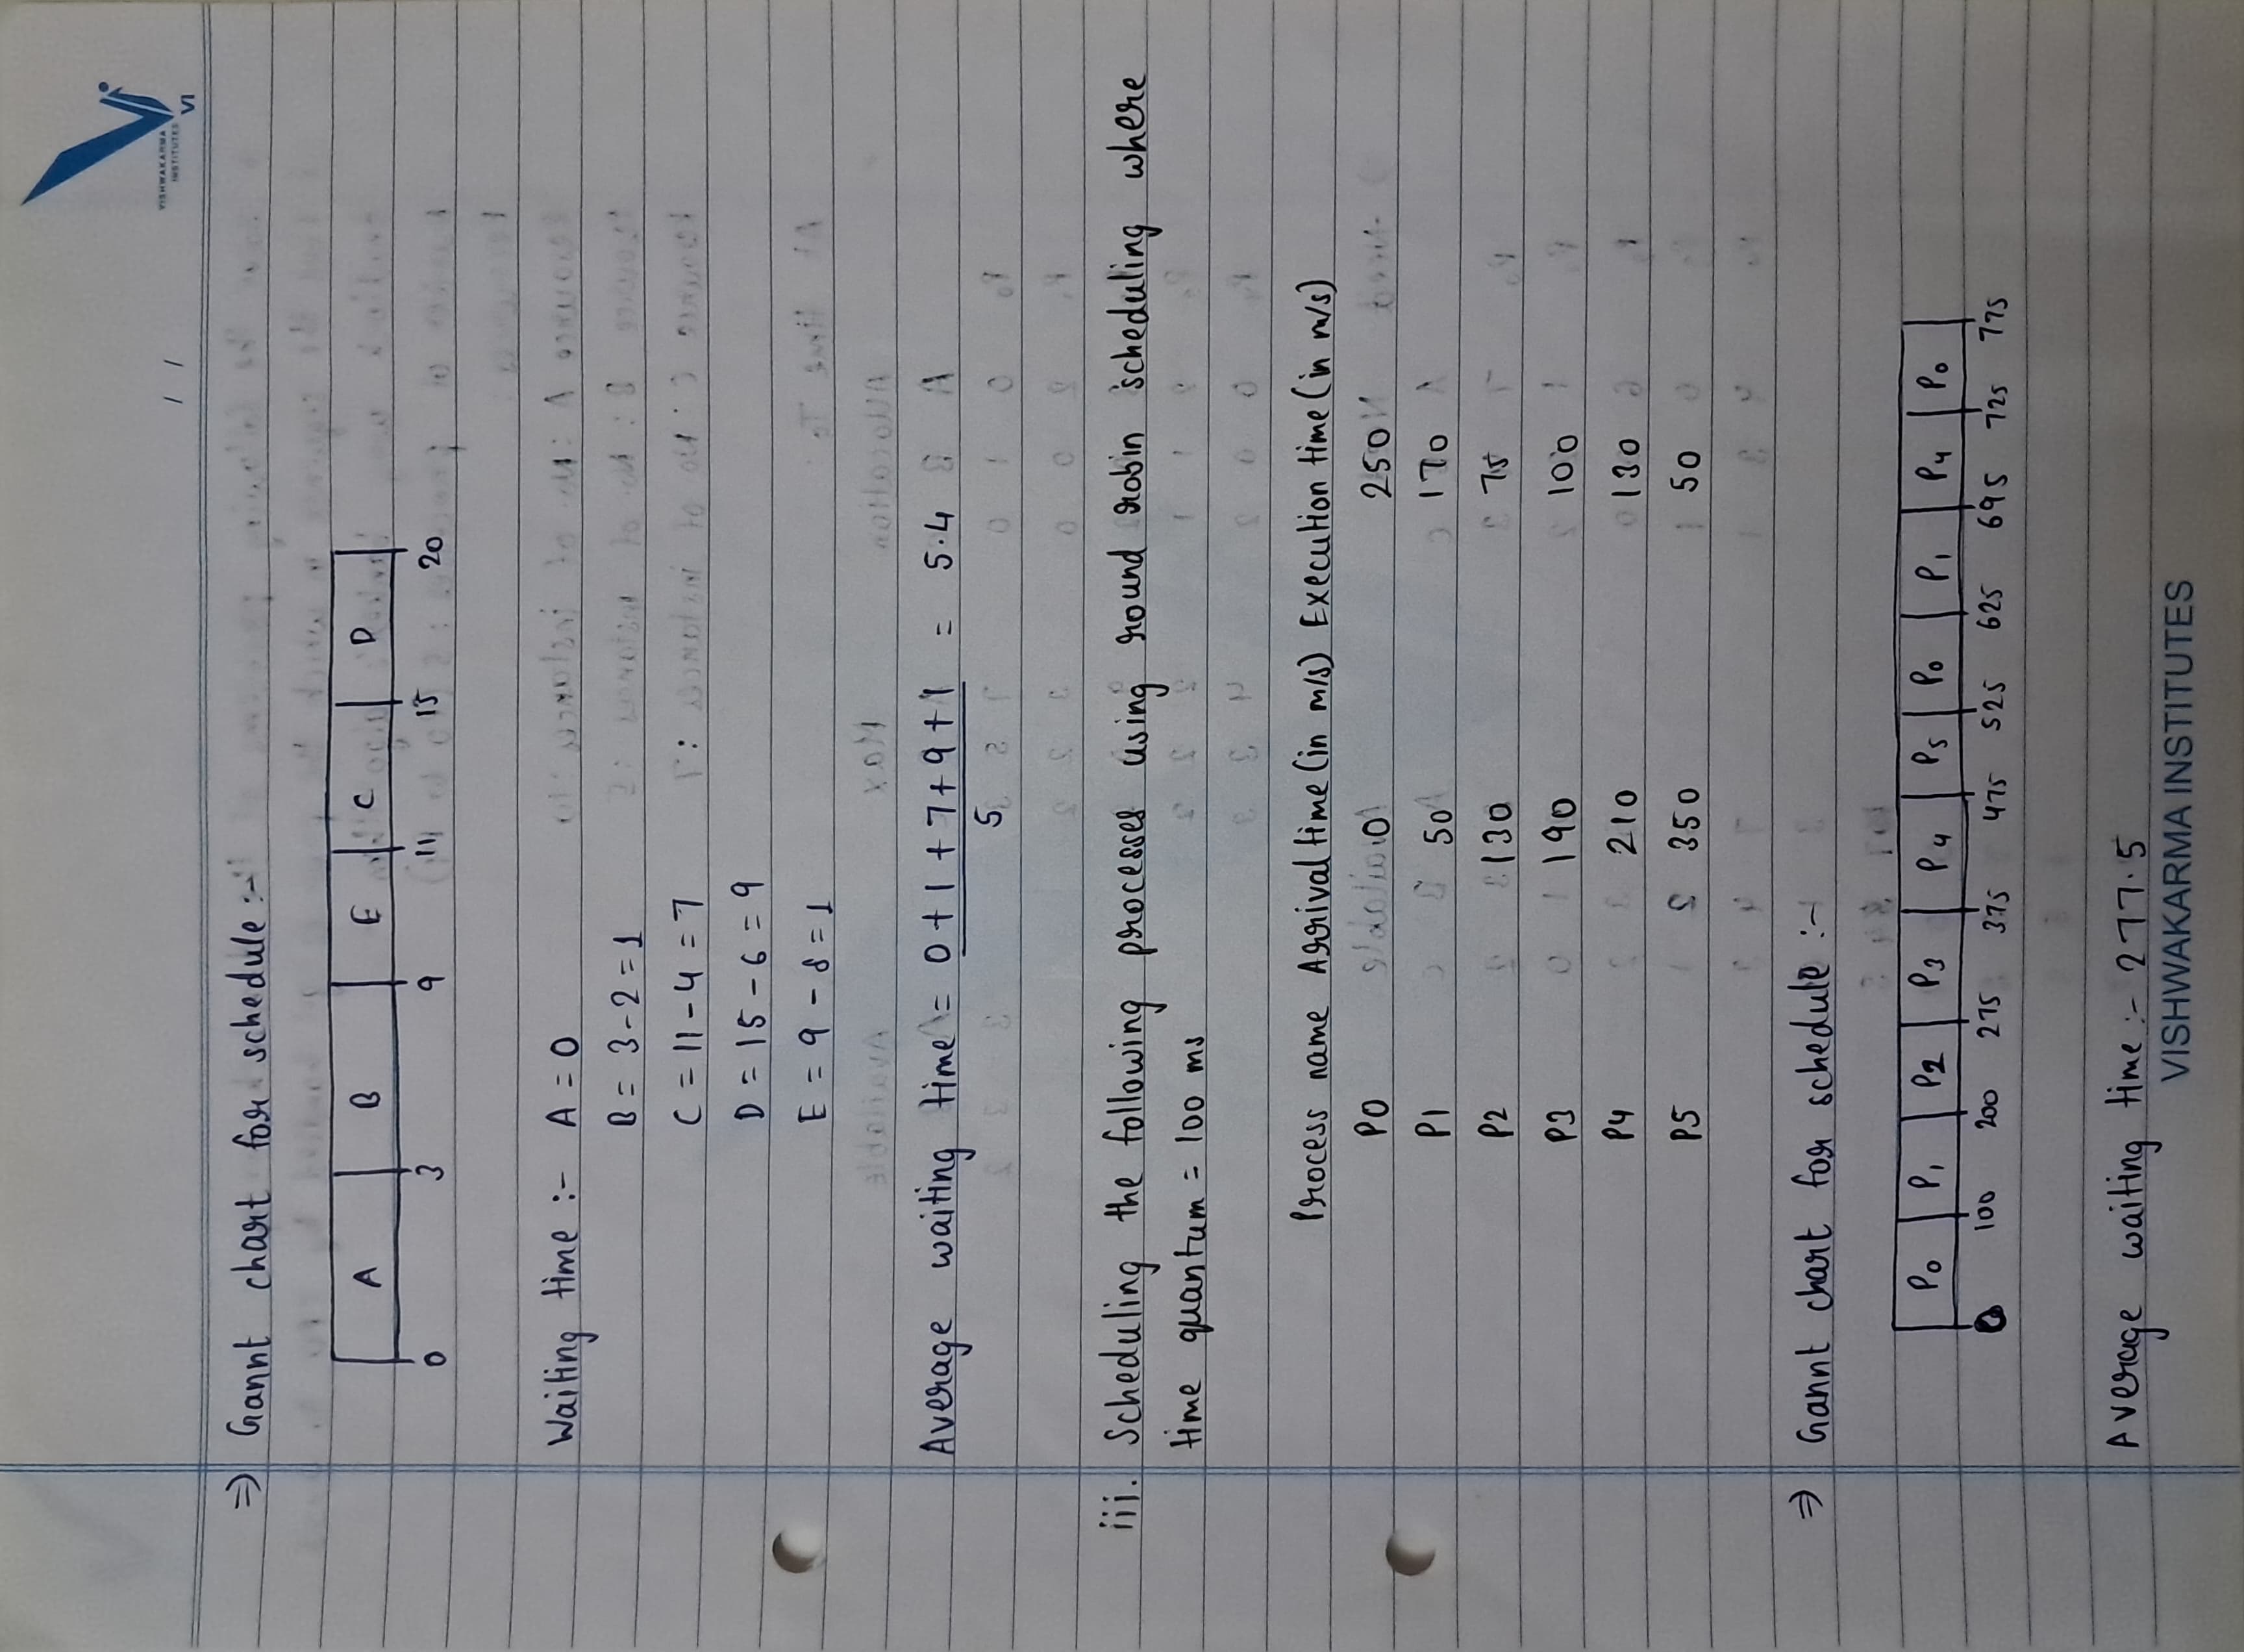 VISHWAKARMA
INSTITUTES
VI
/ /
⇒ Gannt chart for schedule :-
A B E C D
0 3 9 11 15 20
Waiting time :- A = 0
B = 3 - 2 = 1
C = 11 - 4 = 7
D = 15 - 6 = 9
E = 9 - 8 = 1
Average waiting time = 0 + 1 + 7 + 9 + 1 = 5.4
5
iii. Scheduling the following processes using round robin scheduling where
time quantum = 100 ms
Process name Arrival time (in m/s) Execution time (in m/s)
P0 0 250
P1 50 170
P2 130 75
P3 190 100
P4 210 130
P5 350 50
⇒ Gannt chart for schedule :-
P0 P1 P2 P3 P4 P5 P0 P1 P4 P0
0 100 200 275 375 475 525 625 695 725 775
Average waiting time :- 277.5
VISHWAKARMA INSTITUTES